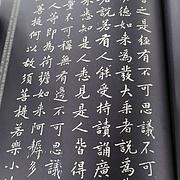 之是經有不可思議不可
德如來為發大乘者說為
若有人能受持讀誦廣
來悉知是人悉見是人皆得
不可稱無有邊不可思議
人等即為荷擔如來阿耨多
菩提何以故須菩提若樂小